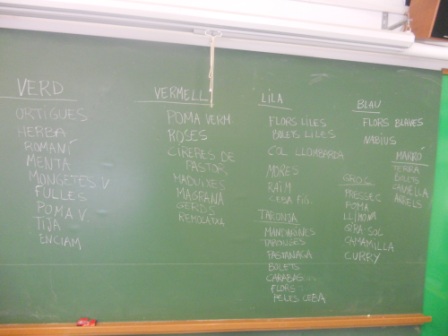 VERD
ORTIGUES
HERBA
ROMANÍ
MENTA
MONGETES V
FULLES
POMA V.
TIJA
ENCIAM
VERMELL
POMA VERM
ROSES
CIRERES DE
PASTOR
MADUIXES
MAGRANA
GERDS
REMOLATXA
LILA
FLORS LILES
BOLETS LILES
COL LLOMBARDA
MORES
RAÏM
CEBA FIG.
TARONJA
MANDARINES
TARONGES
PASTANAGA
BOLETS
CARABAS
FLORS
PELUS CEBA
BLAU
FLORS BLAVES
NABIUS
GROC
PRESSEC
POMA
LLIMONA
GIRA SOL
CAMAMILLA
CURRY
MARRÓ
TERRA
BOLETS
CANYELLA